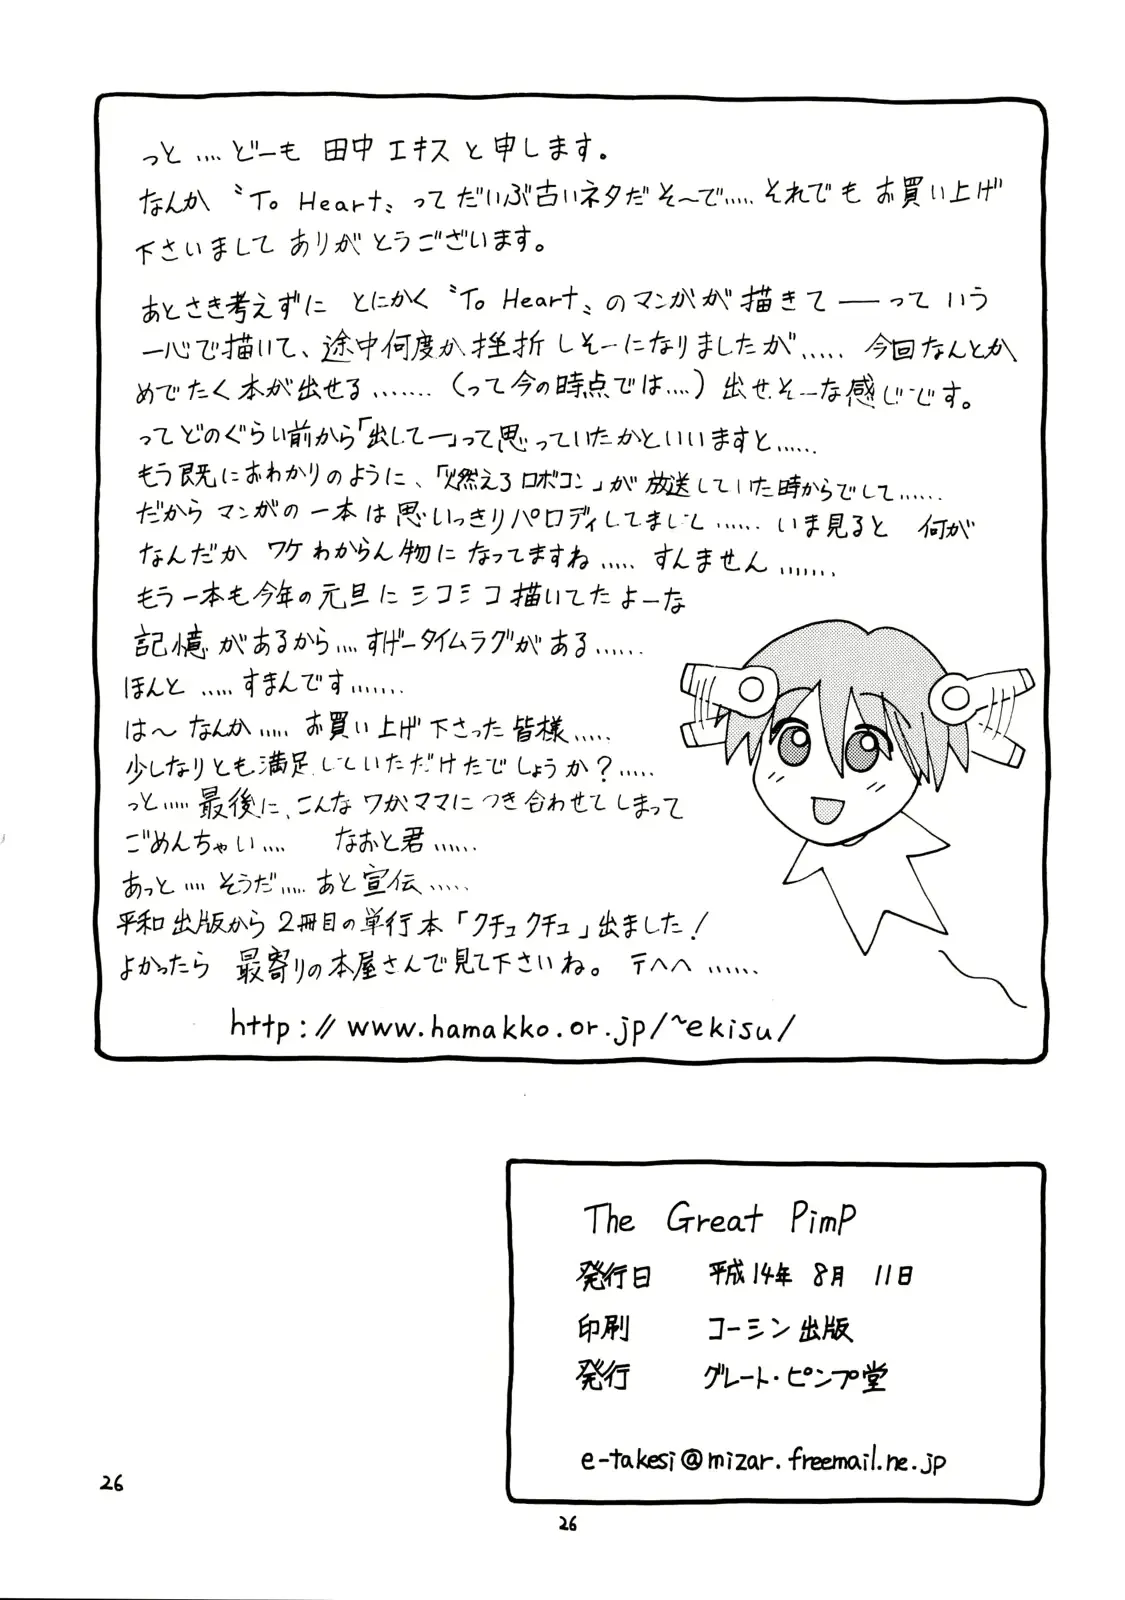 っと....どーも 田中エキスと申します。
なんか〝To Heart〟ってだいぶ古いネタだそ〜で.....それでもお買い上げ
下さいましてありがとうございます。
あとさき考えずに とにかく〝To Heart〟のマンガが描きてーーっていう
一心で描いて、途中何度か挫折しそーになりましたが..... 今回なんとか
めでたく本が出せる.......（って今の時点では....）出せそーな感じです。
ってどのぐらい前から「出してー」って思っていたかといいますと......
もう既におわかりのように、「燃えろロボコン」が放送していた時からでして......
だからマンガの一本は思いっきりパロディしてまして...... いま見ると 何が
なんだか ワケわからん物になってますね..... すんません.......
もう一本も今年の元旦にシコシコ描いてたよーな
記憶があるから....すげータイムラグがある......
ほんと.....すまんです.......
は〜なんか.....お買い上げ下さった皆様.....
少しなりとも満足していただけたでしょうか?.....
っと.....最後に、こんなワガママにつき合わせてしまって
ごめんちゃい.... なおと君......
あっと....そうだ.....あと宣伝.....
平和出版から2冊目の単行本「クチュクチュ」出ました!
よかったら 最寄りの本屋さんで見て下さいね。テヘヘ......
http://www.hamakko.or.jp/~ekisu/
The Great PimP
発行日 平成14年 8月 11日
印刷 コーシン出版
発行 グレート・ピンプ堂
e-takesi@mizar.freemail.ne.jp
26
26